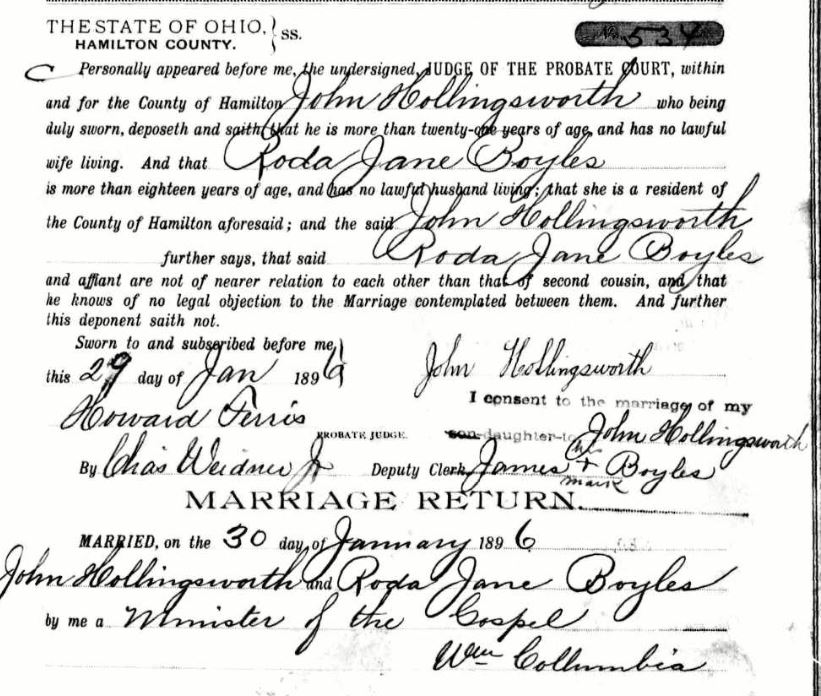 THE STATE OF OHIO, } ss.
HAMILTON COUNTY.
No. 534
Personally appeared before me, the undersigned, JUDGE OF THE PROBATE COURT, within
and for the County of Hamilton John Hollingsworth who being
duly sworn, deposeth and saith that he is more than twenty-one years of age, and has no lawful
wife living. And that Roda Jane Boyles
is more than eighteen years of age, and has no lawful husband living; that she is a resident of
the County of Hamilton aforesaid; and the said John Hollingsworth
further says, that said Roda Jane Boyles
and affiant are not of nearer relation to each other than that of second cousin, and that
he knows of no legal objection to the Marriage contemplated between them. And further
this deponent saith not.
Sworn to and subscribed before me
this 29 day of Jan 1896 John Hollingsworth
I consent to the marriage of my
Howard Ferris
PROBATE JUDGE. son-daughter-to John Hollingsworth
By Chas Weidner Jr Deputy Clerk. James his + mark Boyles
MARRIAGE RETURN.
MARRIED, on the 30 day of January 1896
John Hollingsworth and Roda Jane Boyles
by me a Minister of the Gospel
Wm Collumbia